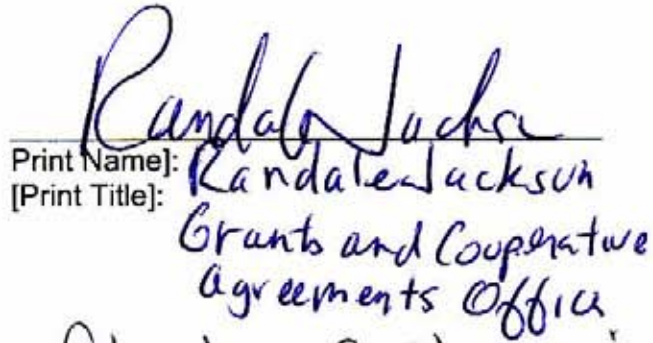 Randale Jackson
Print Name]: Randale Jackson
[Print Title]:
Grants and Cooperative
Agreements Office